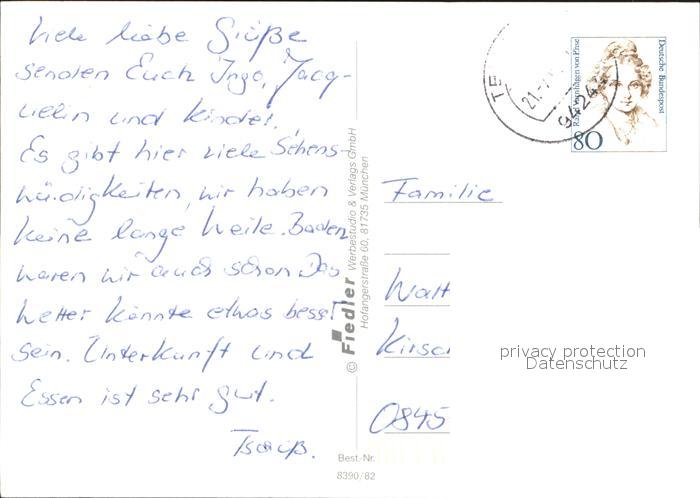 Viele liebe Grüße
senden Euch Ingo, Jacq-
uelin und Kinder.
Es gibt hier viele Sehens-
würdigkeiten, wir haben
keine lange Weile. Baden
waren wir auch schon Das
Wetter könnte etwas besser
sein. Unterkunft und
Essen ist sehr gut.
Tschüß.
© Fiedler Werbestudio & Verlags GmbH
Hofangerstraße 60, 81735 München
Best.-Nr.
8390/82
TE
21.-7
94244
Rahel Varnhagen von Ense
Deutsche Bundespost
80
Familie
Walt
Kirsc
0845
privacy protection
Datenschutz